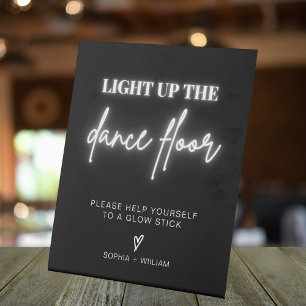 LIGHT UP THE
dance floor
PLEASE HELP YOURSELF
TO A GLOW STICK
SOPHIA + WILIAM